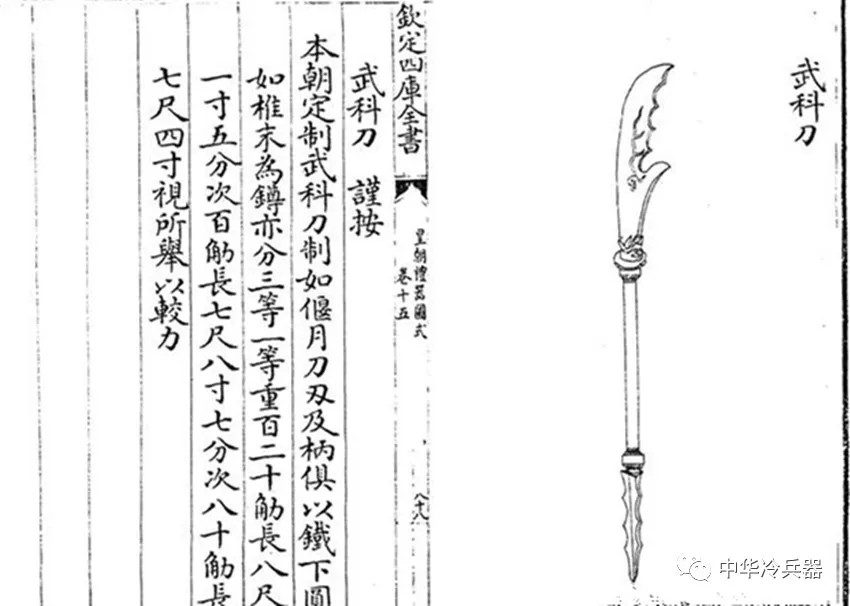 武科刀
欽定四庫全書
皇朝禮器圖式
卷十五
八十八
武科刀 謹按
本朝定制武科刀制如偃月刀刃及柄俱以鐵下圓
如椎末為鐏亦分三等一等重百二十觔長八尺
一寸五分次百觔長七尺八寸七分次八十觔長
七尺四寸視所舉以較力
中华冷兵器